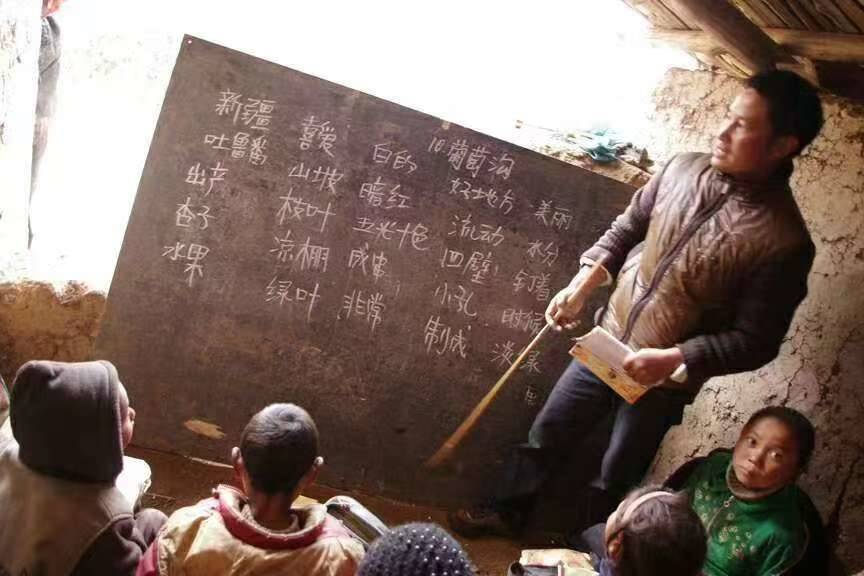 新疆
吐鲁番
出产
杏子
水果
喜爱
山坡
枝叶
凉棚
绿叶
白的
暗红
五光十色
成串
非常
10.葡萄沟
好地方
流动
四壁
小孔
制成
美丽
水分
钉着
时候
淡